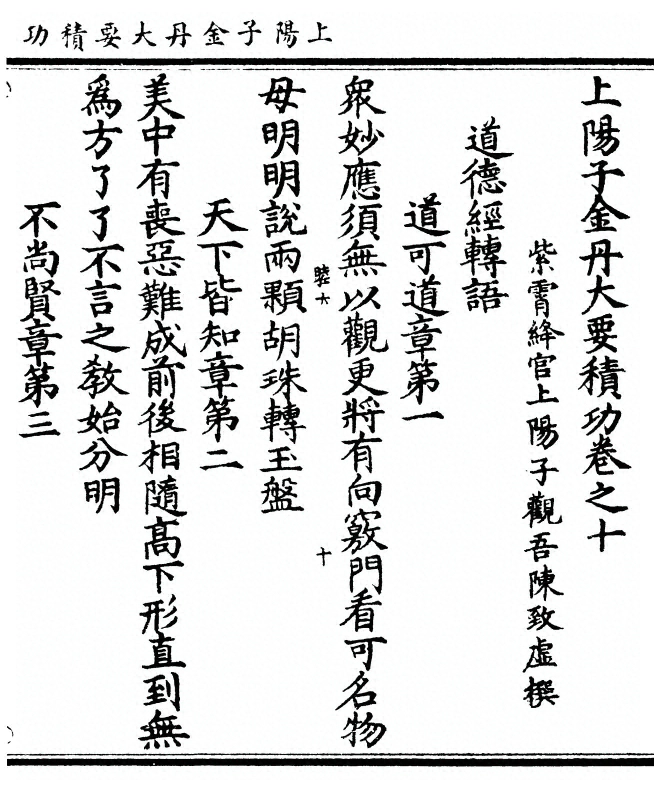 功積要大丹金子陽上
上陽子金丹大要積功卷之十
紫霄絳宮上陽子觀吾陳致虛撰
道德經轉語
道可道章第一
衆妙應須無以觀更將有向竅門看可名物
睦六
十
母明明說兩顆胡珠轉玉盤
天下皆知章第二
美中有喪惡難成前後相隨高下形直到無
爲方了了不言之教始分明
不尚賢章第三